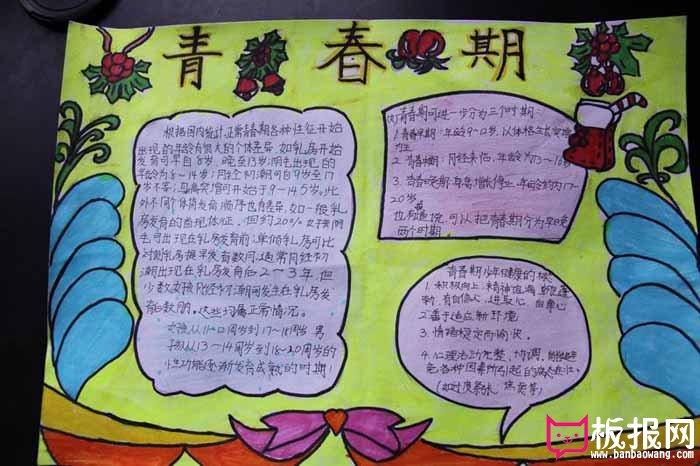 青春期
根据国内统计,正常青春期各种性征开始
出现的年龄有很大的个体差异,如乳房开始
发育可早自8岁,晚至13岁;阴毛出现的
年龄为8~14岁;月经初潮可自9岁至17
岁不等;身高突增可开始于9~14.5岁。此
外不同个体发育顺序也有差异,如一般乳
房发育的出现体征,但约20%女子阴
毛可出现在乳房发育前;单侧乳房可比
对侧乳房提早发育数月;通常月经初
潮出现在乳房发育后2~3年,但
少数女孩月经初潮间发生在乳房发
育的数月。这些均属正常情况。
女孩从11~12周岁到17~18周岁 男
孩从13~14周岁到18~20周岁的
性功能逐渐发育成熟的时期!
青春期可进一步分为三个时期:
1.青春早期:年龄9~12岁,以体格生长突增
为主
2.青春中期:月经来临,年龄为13~16岁
3.青春晚期:身高增长停止,年龄约为17~
20岁
也有学说,可以把青春期分为早晚
两个时期.
青春期少年健康的标
1.积极向上,精神饱满,朝气蓬
勃,有自信心,进取心,自尊心
2.善于适应新环境
3.情绪稳定而愉快。
4.心理活动完整、协调,能够避
免各种因素所引起的病态变化。
(如过度紧张、焦虑等)
板报网
www.banbaowang.com